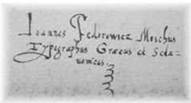 Joannes Fedorowicz Moschus
Typographus Græcus et Scla-
vonicus